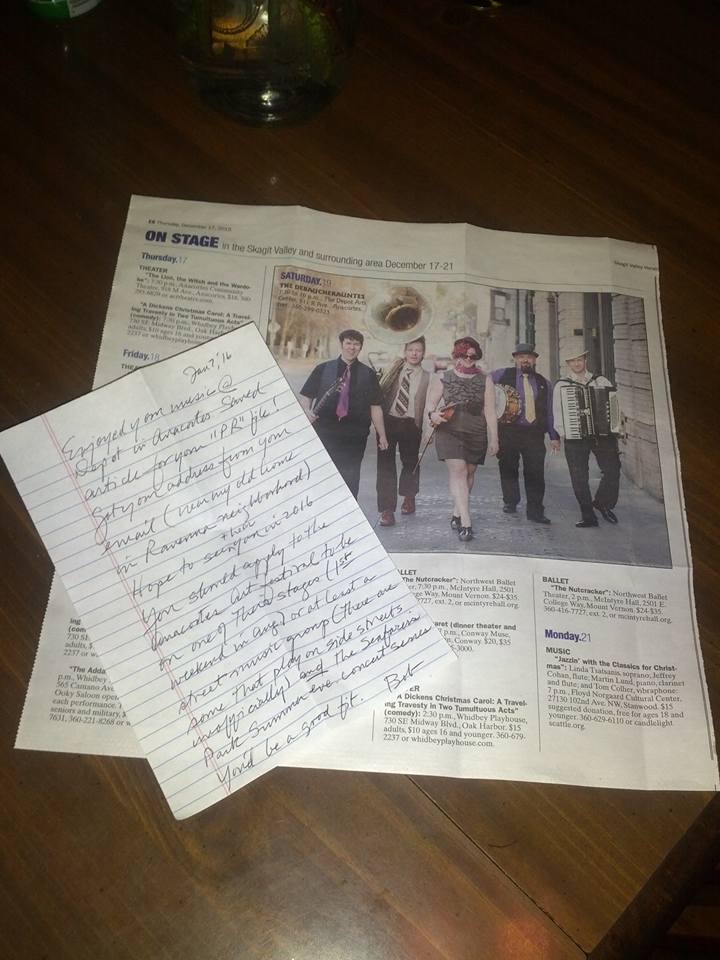 E6 Thursday, December 17, 2015
Skagit Valley Herald
ON STAGE in the Skagit Valley and surrounding area December 17-21
Thursday.17
THEATER
"The Lion, the Witch and the Wardrobe": 7:30 p.m., Anacortes Community
Theater, 918 M Ave., Anacortes.
"A Dickens Christmas Carol: A Travel-
ing Travesty in Two Tumultuous Acts"
(comedy): 7:30 p.m., Whidbey Playhouse,
730 SE Midway Blvd., Oak Harbor.
adults, $10 ages 16 and younger. 360-679-
2237 or whidbeyplayhouse
Friday.18
SATURDAY.19
THE DEBAUCHERAUNTES
7:30-10 p.m., The Depot Arts
Center, 611 R Ave., Anacortes.
360-299-0323
Jan 7, '16
Enjoyed your music @
Depot in Anacortes Saved
article for your "PR" file!
Got your address from your
email (near my old home
in Ravenna neighborhood)
Hope to see + hear you in 2016
You should apply to the
Anacortes Art Festival to be
on one of there stages (1st
weekend in Aug) or at least a
street music group (there are
some that play on side streets
unofficially) and the Seafarers
Park Summer eve. concert series.
You'd be a good fit. Bob
ing
(com
730 SE
2237 or w
"The Adda
p.m., Whidbey
565 Camano Ave
Ooky Saloon open
each performance. T
seniors and military, $
7631, 360-221-8268 or w
BALLET
"The Nutcracker": Northwest Ballet
Theater, 7:30 p.m., McIntyre Hall, 2501 E.
College Way, Mount Vernon. $24-$35.
7727, ext. 2, or mcintyrehall.org.
aret (dinner theater and
p.m., Conway Muse,
Conway. $20, $35
"A Dickens Christmas Carol: A Travel-
ing Travesty in Two Tumultuous Acts"
(comedy): 2:30 p.m., Whidbey Playhouse,
730 SE Midway Blvd., Oak Harbor. $15
adults, $10 ages 16 and younger. 360-679-
2237 or whidbeyplayhouse.com.
BALLET
"The Nutcracker": Northwest Ballet
Theater, 2 p.m., McIntyre Hall, 2501 E.
College Way, Mount Vernon. $24-$35.
360-416-7727, ext. 2, or mcintyrehall.org.
Monday.21
MUSIC
"Jazzin' with the Classics for Christ-
mas": Linda Tsatsanis, soprano; Jeffrey
Cohan, flute; Martin Lund, piano, clarinet
and flute; and Tom Collier, vibraphone:
7 p.m., Floyd Norgaard Cultural Center,
27130 102nd Ave. NW, Stanwood. $15
suggested donation, free for ages 18 and
younger. 360-629-6110 or candlelight
seattle.org.